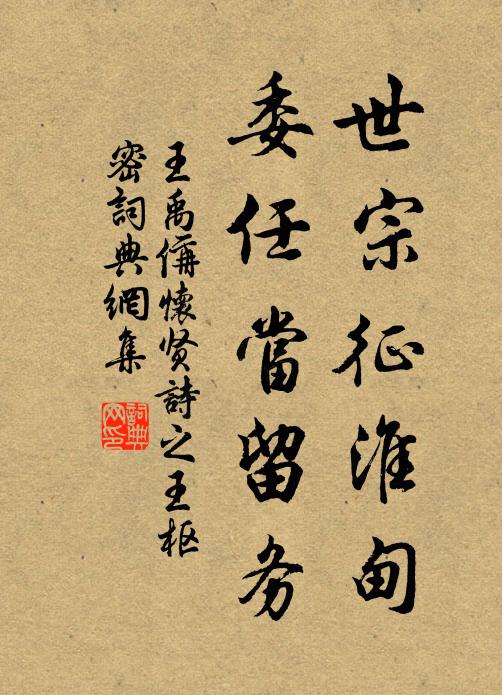 世宗征淮甸
委任當留务
王禹偁懷贤詩之王枢
密詞典網集
詞典网印